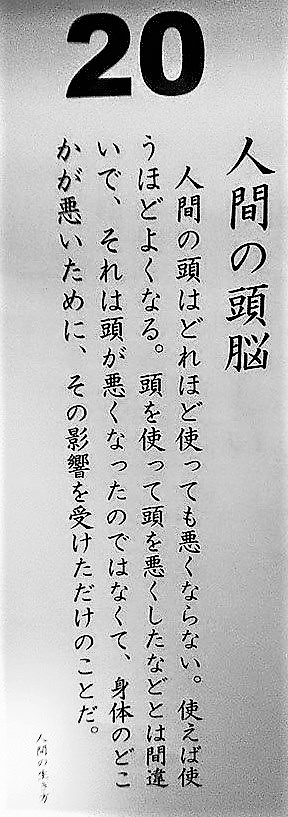 20
人間の頭脳
人間の頭はどれほど使っても悪くならない。使えば使
うほどよくなる。頭を使って頭を悪くしたなどとは間違
いで、それは頭が悪くなったのではなくて、身体のどこ
かが悪いために、その影響を受けただけのことだ。
人間の生き方